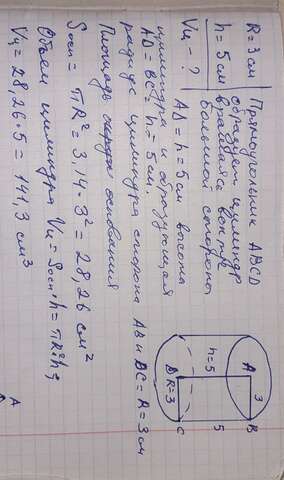 R = 3 см
h = 5 см
Vц - ?
Прямоугольник ABCD
образует цилиндр
вращаясь вокруг
большой стороны
AD = h = 5 см высота
цилиндра и образующая
AD = BC = h = 5 см.
радиус цилиндра сторона AB и DC = R = 3 см
Площадь основания
Sосн = πR² = 3,14 · 3² = 28,26 см²
Объем цилиндра Vц = Sосн · h = πR²h;
Vц = 28,26 · 5 = 141,3 см³
3
A
B
h = 5
5
D
R = 3
C
A